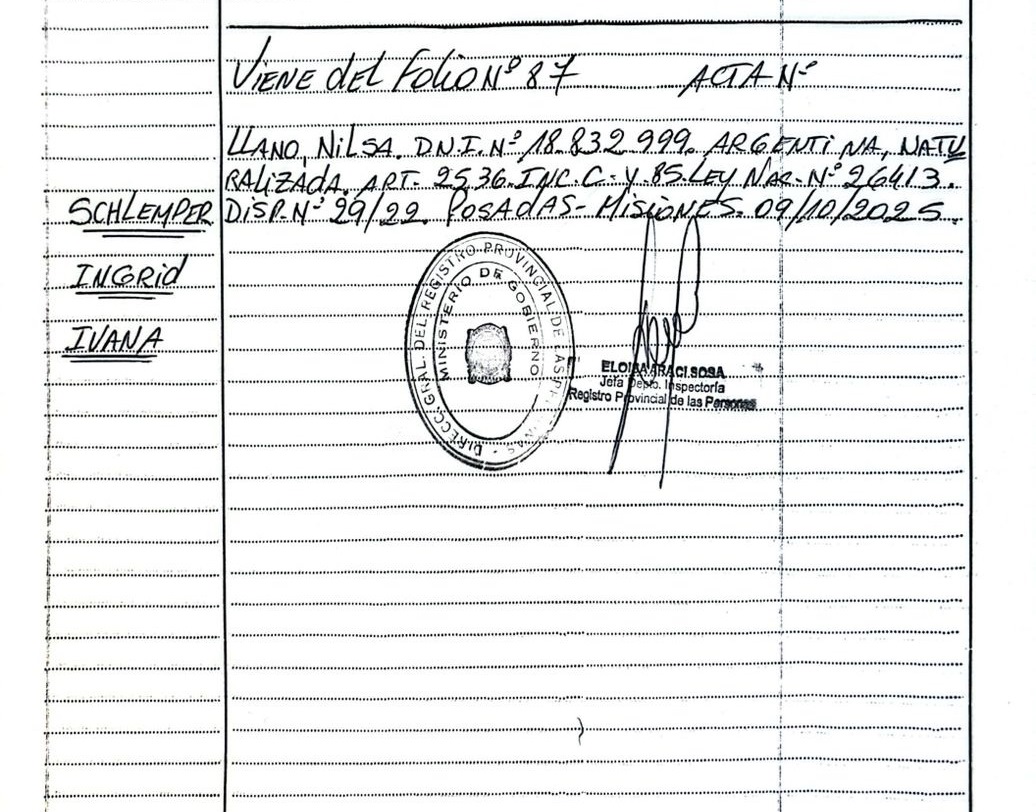 VIENE del Folio Nº 87 ACTA Nº
LLANO, NILSA. D.N.I. Nº 18.832.999. ARGENTINA, NATU
RALIZADA. ART. 2536. INC. C. Y. 85. LEY NAC. Nº 26413.
SCHLEMPER DISP. Nº 29/22. POSADAS - MISIONES. 09/10/2025.
INGRID
IVANA
DIRECC. GRAL. DEL REGISTRO PROVINCIAL DE LAS PERSONAS
MINISTERIO DE GOBIERNO
ELOISA ARACI SOSA
Jefa Depto. Inspectoría
Registro Provincial de las Personas